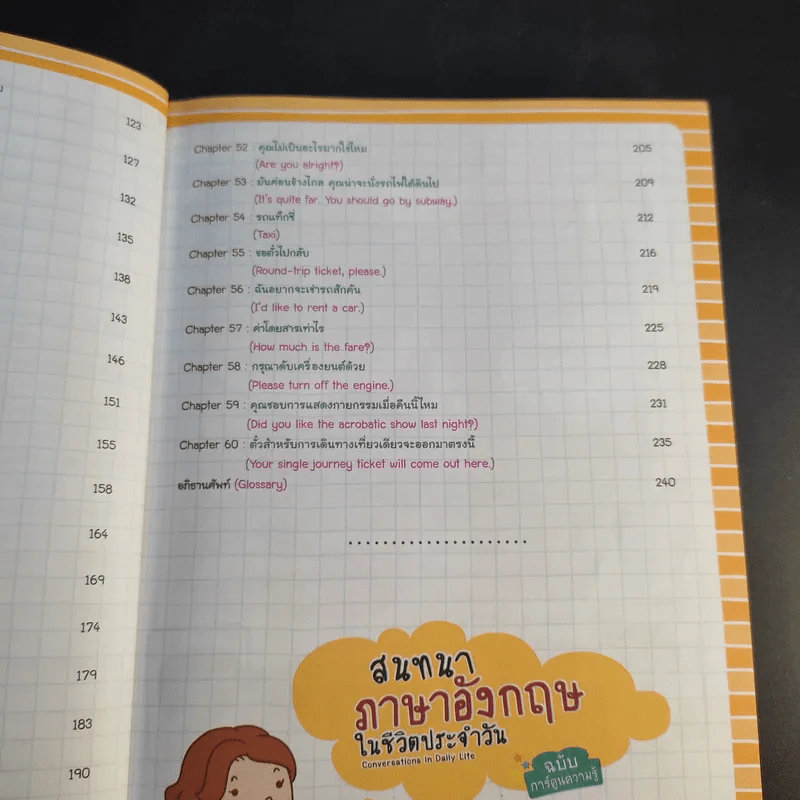 123
127
132
135
138
143
146
151
155
158
164
169
174
179
183
190
Chapter 52 : คุณไม่เป็นอะไรมากใช่ไหม 205
(Are you alright?)
Chapter 53 : มันค่อนข้างไกล คุณน่าจะนั่งรถไฟใต้ดินไป 209
(It's quite far. You should go by subway.)
Chapter 54 : รถแท็กซี่ 212
(Taxi)
Chapter 55 : ขอตั๋วไปกลับ 216
(Round-trip ticket, please.)
Chapter 56 : ฉันอยากจะเช่ารถสักคัน 219
(I'd like to rent a car.)
Chapter 57 : ค่าโดยสารเท่าไร 225
(How much is the fare?)
Chapter 58 : กรุณาดับเครื่องยนต์ด้วย 228
(Please turn off the engine.)
Chapter 59 : คุณชอบการแสดงกายกรรมเมื่อคืนนี้ไหม 231
(Did you like the acrobatic show last night?)
Chapter 60 : ตั๋วสำหรับการเดินทางเที่ยวเดียวจะออกมาตรงนี้ 235
(Your single journey ticket will come out here.)
อภิธานศัพท์ (Glossary) 240
.....................
สนทนา
ภาษาอังกฤษ
ในชีวิตประจำวัน
Conversations in Daily Life
ฉบับ
การ์ตูนความรู้